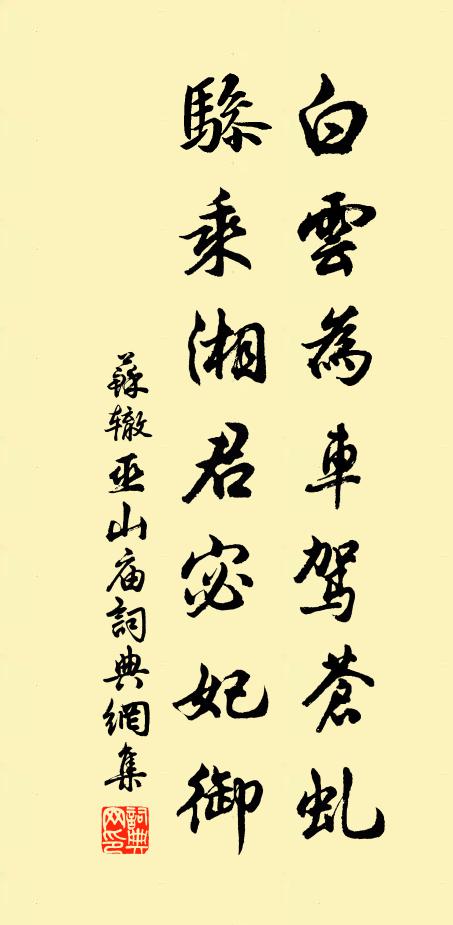 白雲為車駕蒼虬
驂乘湘君宓妃御
蘇辙巫山庙詞典網集
詞典网印